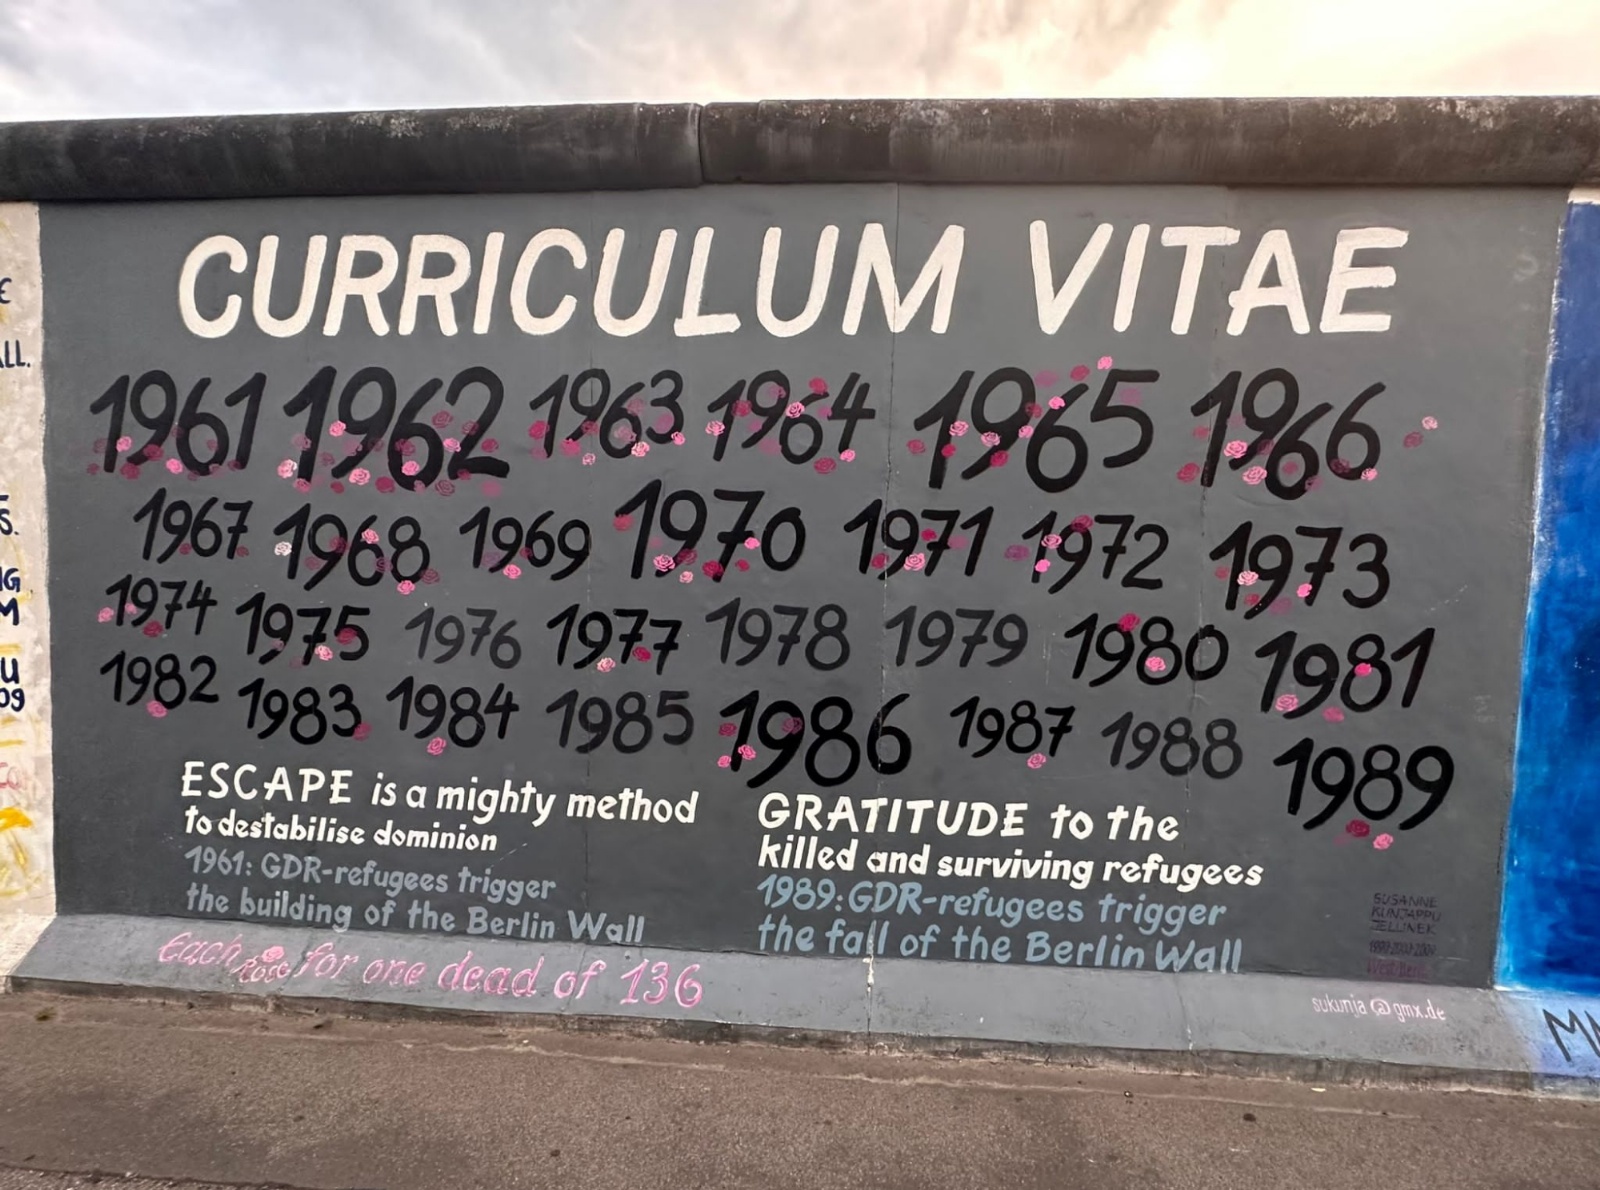 CURRICULUM VITAE
1961 1962 1963 1964 1965 1966
1967 1968 1969 1970 1971 1972 1973
1974 1975 1976 1977 1978 1979 1980 1981
1982 1983 1984 1985 1986 1987 1988 1989
ESCAPE is a mighty method
to destabilise dominion
1961: GDR-refugees trigger
the building of the Berlin Wall
GRATITUDE to the
killed and surviving refugees
1989: GDR-refugees trigger
the fall of the Berlin Wall
Each Rose for one dead of 136
SUSANNE
KUNJAPPU
JELLINEK
sukunja@gmx.de
ALL.
S.
U
09